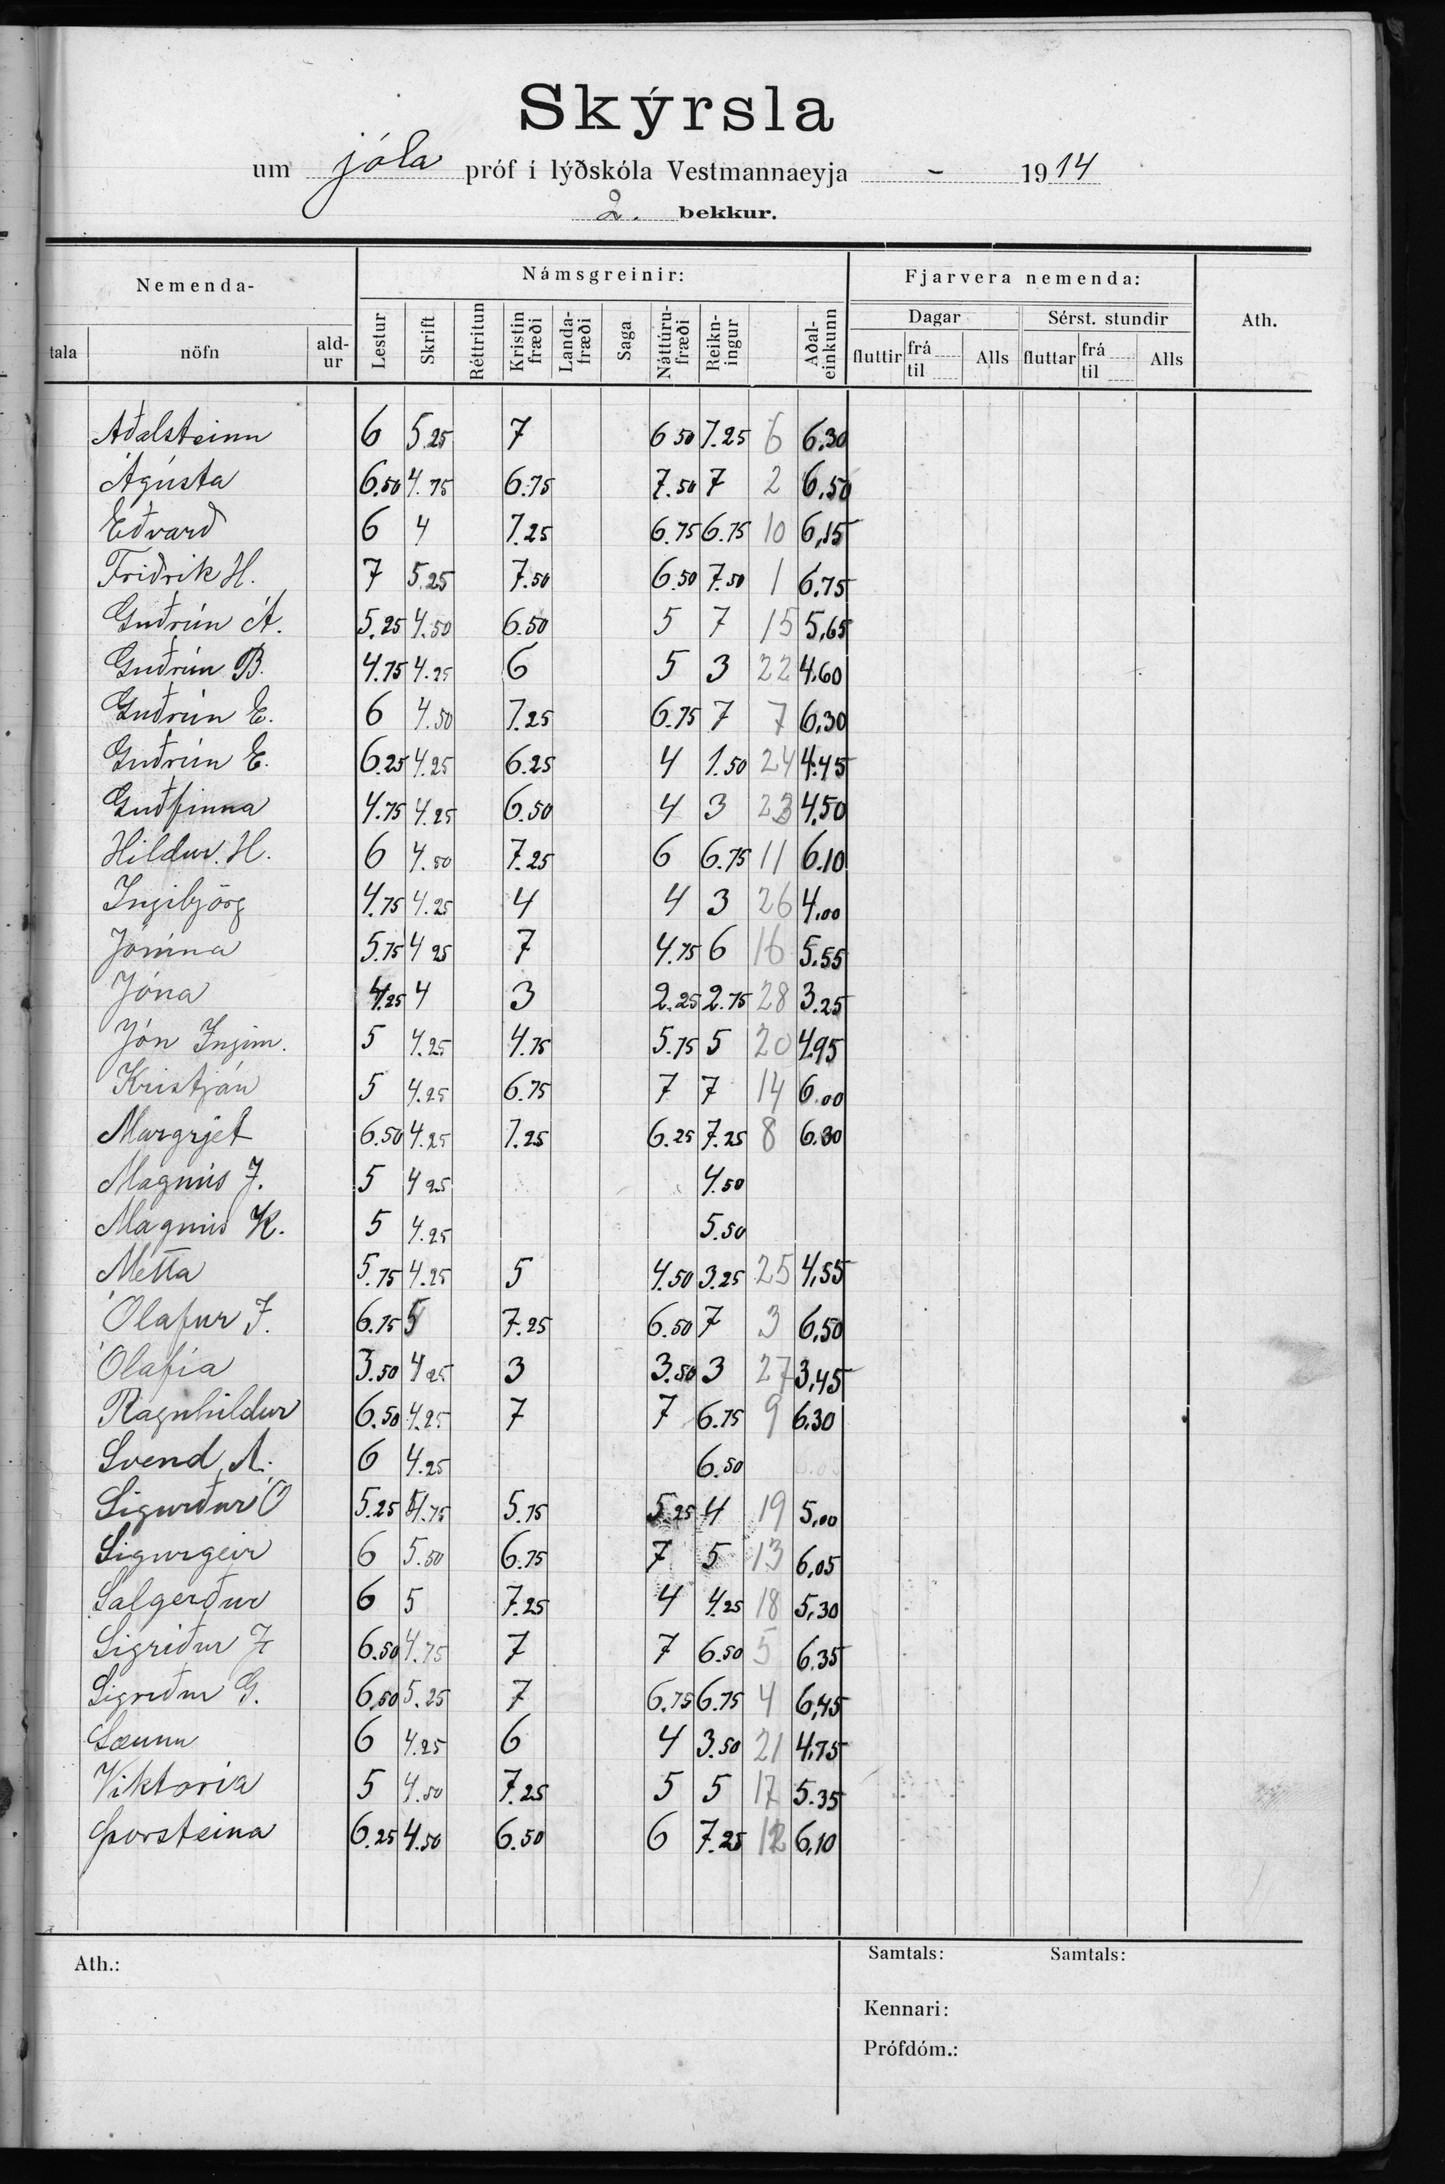 Skýrsla
um jóla próf í lýðskóla Vestmannaeyja - 1914
2. bekkur.
Nemenda- Námsgreinir: Fjarvera nemenda: Ath.
Dagar Sérst. stundir
tala nöfn ald-ur Lestur Skrift Réttritun Kristinfræði Landa-fræði Saga Náttúru-fræði Reikn-ingur Aðal-einkunn fluttir frá til Alls fluttar frá til Alls
Aðalsteinn 6 5.25 7 6.50 7.25 6 6.30
Ágústa 6.50 4.75 6.75 7.50 7 2 6.50
Eðvarð 6 4 7.25 6.75 6.75 10 6,15
Friðrik H. 7 5.25 7.50 6.50 7.50 1 6.75
Guðrún Á. 5.25 4.50 6.50 5 7 15 5,65
Guðrún B. 4.75 4.25 6 5 3 22 4.60
Guðrún E. 6 4.50 7.25 6.75 7 7 6,30
Guðrún E. 6.25 4.25 6.25 4 1.50 24 4.45
Guðfinna 4.75 4.25 6.50 4 3 23 4,50
Hildur. H. 6 4.50 7.25 6 6.75 11 6.10
Ingibjörg 4.75 4.25 4 4 3 26 4,00
Jónína 5.75 4 25 7 4.75 6 16 5.55
Jóna 4.25 4 3 2.25 2.75 28 3.25
Jón Ingim. 5 4.25 4.75 5.75 5 20 4.95
Kristján 5 4.25 6.75 7 7 14 6.00
Margrjet 6.50 4.25 7.25 6.25 7.25 8 6.30
Magnús J. 5 4 25 4.50
Magnús K. 5 4.25 5.50
Metta 5.75 4.25 5 4.50 3.25 25 4,55
Ólafur J. 6.75 5 7.25 6.50 7 3 6,50
Ólafía 3.50 4 25 3 3.50 3 27 3,45
Ragnhildur 6.50 4.25 7 7 6.75 9 6.30
Svend A. 6 4.25 6.50
Sigurður Ó 5.25 4.75 5.75 5.25 4 19 5,00
Sigurgeir 6 5.50 6.75 7 5 13 6,05
Salgerður 6 5 7.25 4 4.25 18 5,30
Sigríður J 6.50 4.75 7 7 6.50 5 6.35
Sigríður G. 6,50 5.25 7 6.75 6.75 4 6,45
Sæunn 6 4.25 6 4 3.50 21 4.75
Viktoría 5 4.50 7.25 5 5 17 5.35
Þorsteina 6.25 4.50 6.50 6 7.25 12 6,10
Ath.: Samtals: Samtals:
Kennari:
Prófdóm.: